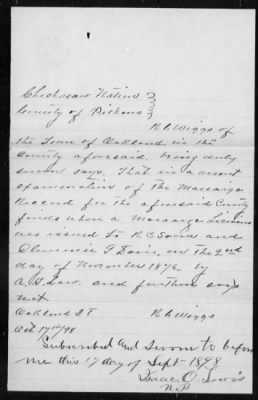 Chickasaw Nation
County of Pickens
R. L. Wiggs of
the Town of Oakland in the
County aforesaid. being duly
sworn says, That in a recent
examination of the Marriage
Record for the aforesaid County
finds where a Marriage License
was issued to R. C. and
Clemmie Davis, on the 2nd
day of November 1876 by
A. and further says
not
Oakland I T R. L. Wiggs
Oct 17th/98
Subscribed and Sworn to before
me this 17 day of Sept 1898
Isaac O. Lewis
N.P.